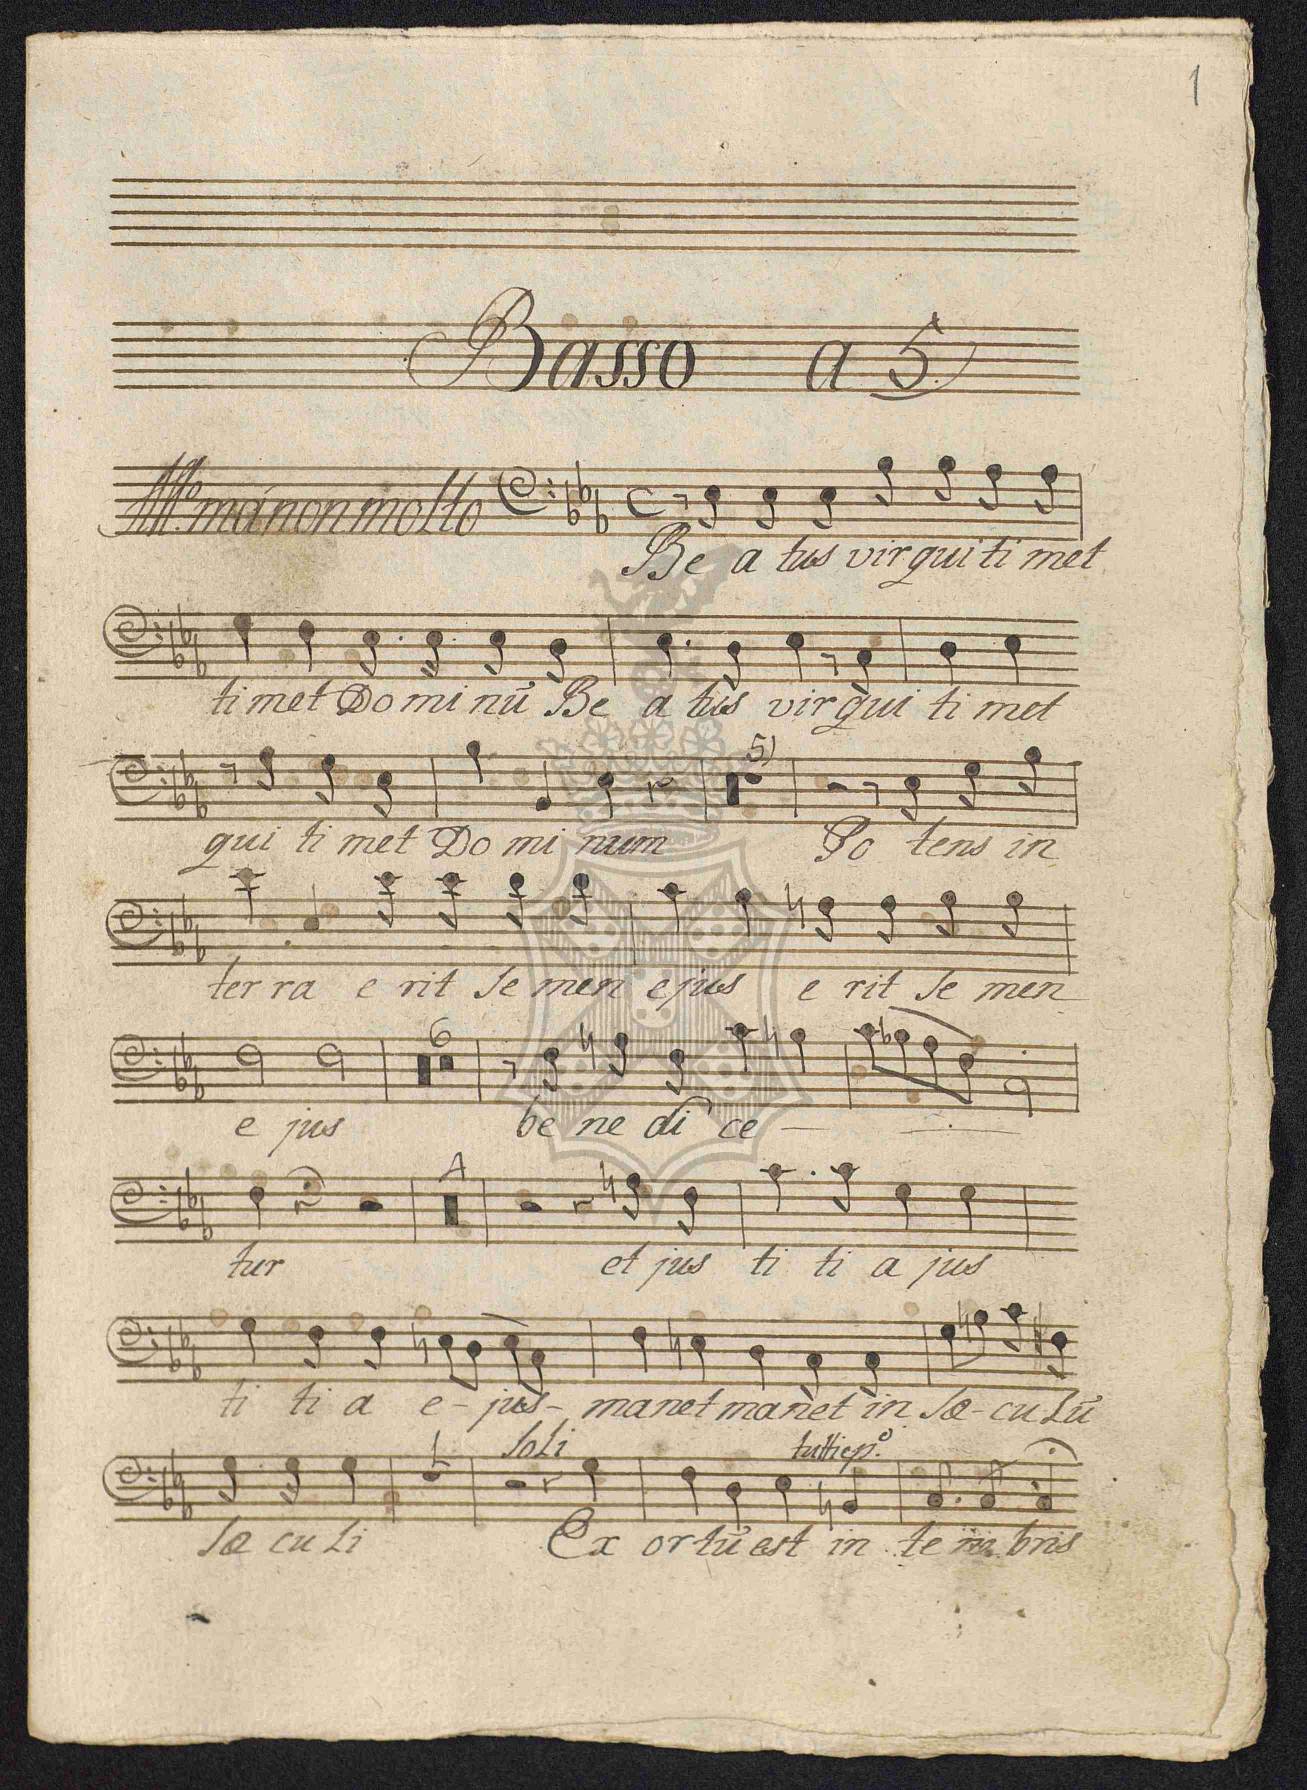 1
Basso a 5
All.o má non molto
Be a tus vir qui ti met
ti met Do mi nũ Be a tus vir qui ti met
5
qui ti met Do mi num Po tens in
ter ra e rit se men ejus e rit se men
6
e jus be ne di ce -
4
tur et jus ti ti a jus
ti ti a e - jus - manet manet in sæ - cu lũ
1 soli tutti e p.o
sæ cu li Ex or tũ est in te ne bris